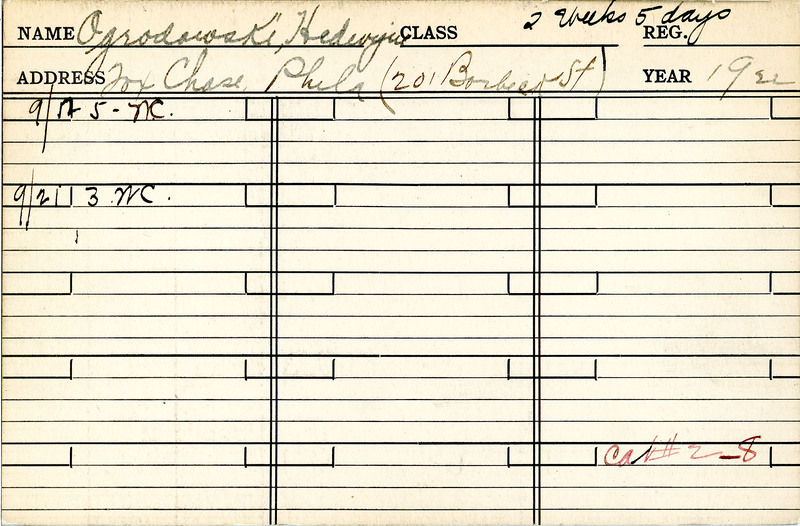 2 Weeks 5 days
NAME Ogrodowski, Hedwyie CLASS REG.
ADDRESS Fox Chase, Phila (201 St) YEAR 1922
9/14 5 - NC.
9/21 3 NC.
Cat # 2-8